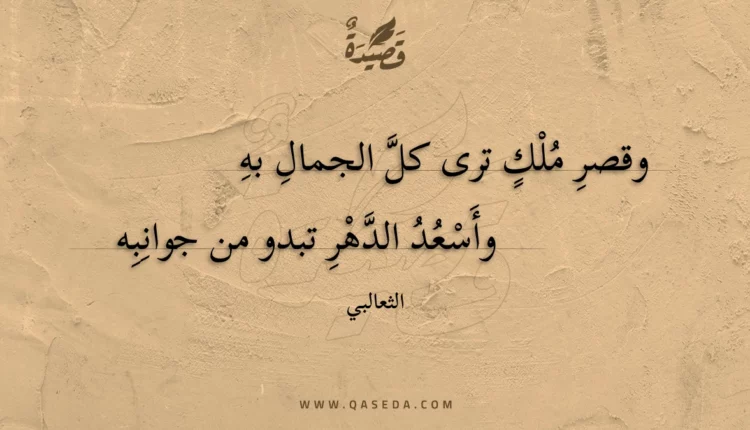 قَصِيدَةٌ
وقصرِ مُلْكٍ ترى كلَّ الجمالِ بهِ
وأَسْعُدُ الدَّهْرِ تبدو من جوانِبِه
الثعالبي
WWW.QASEDA.COM